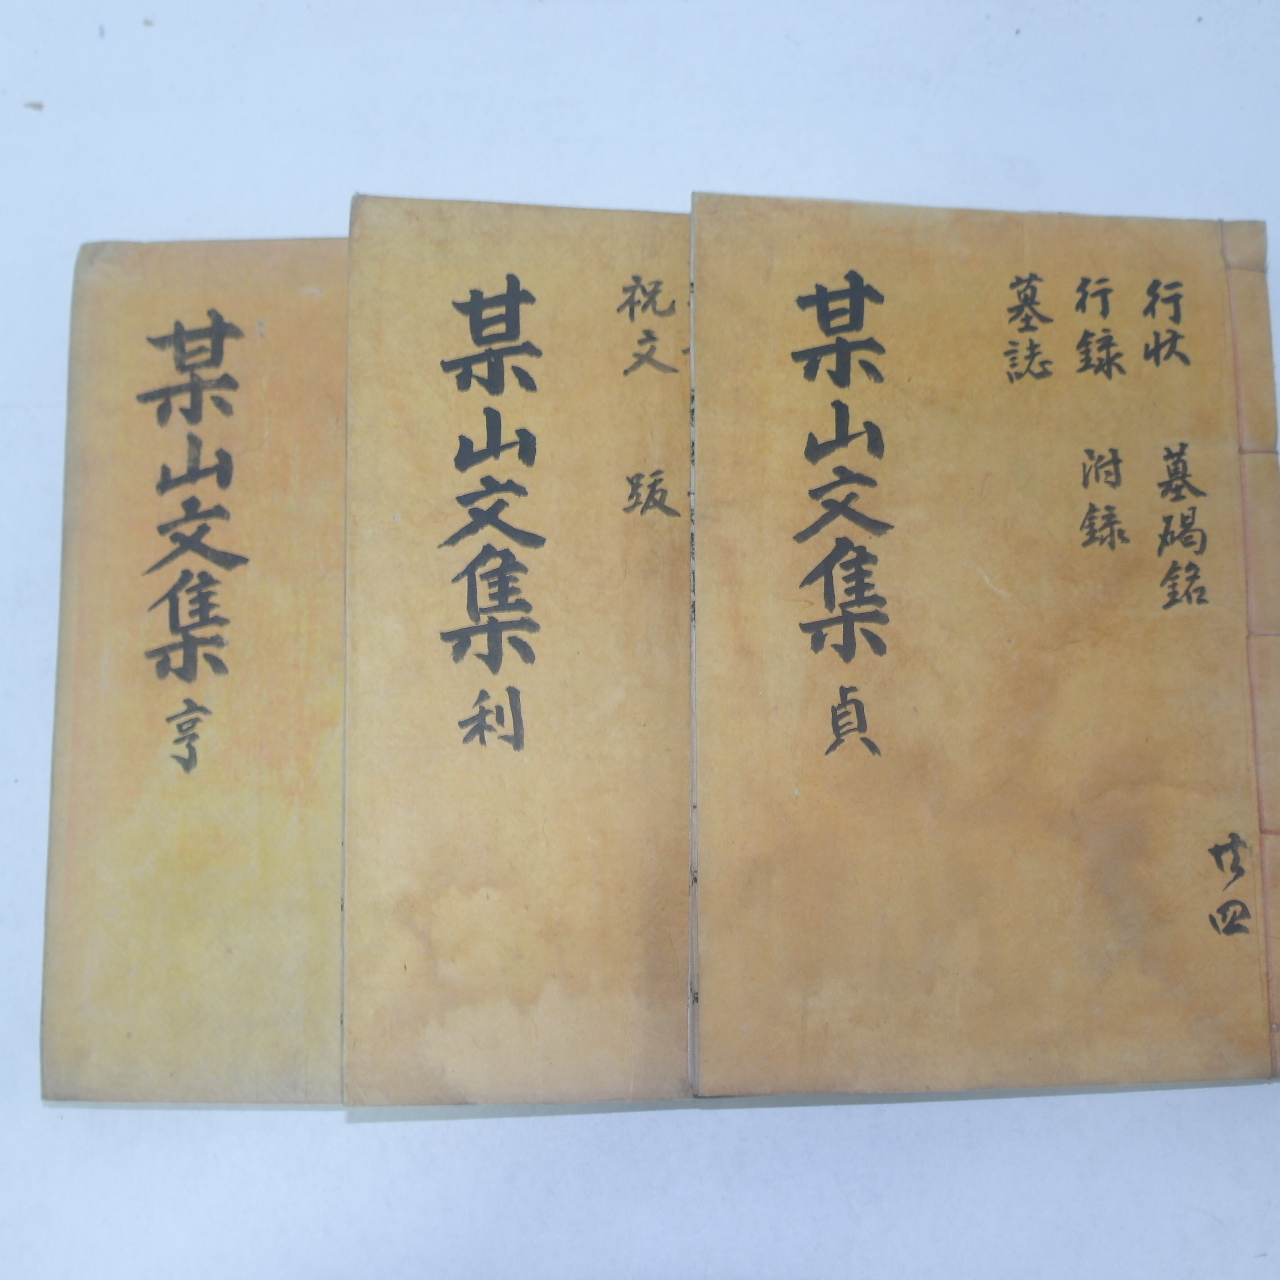 行狀 墓碣銘
行錄 附錄
墓誌
某山文集 貞
廿四
祝文 跋
某山文集 利
某山文集 亨